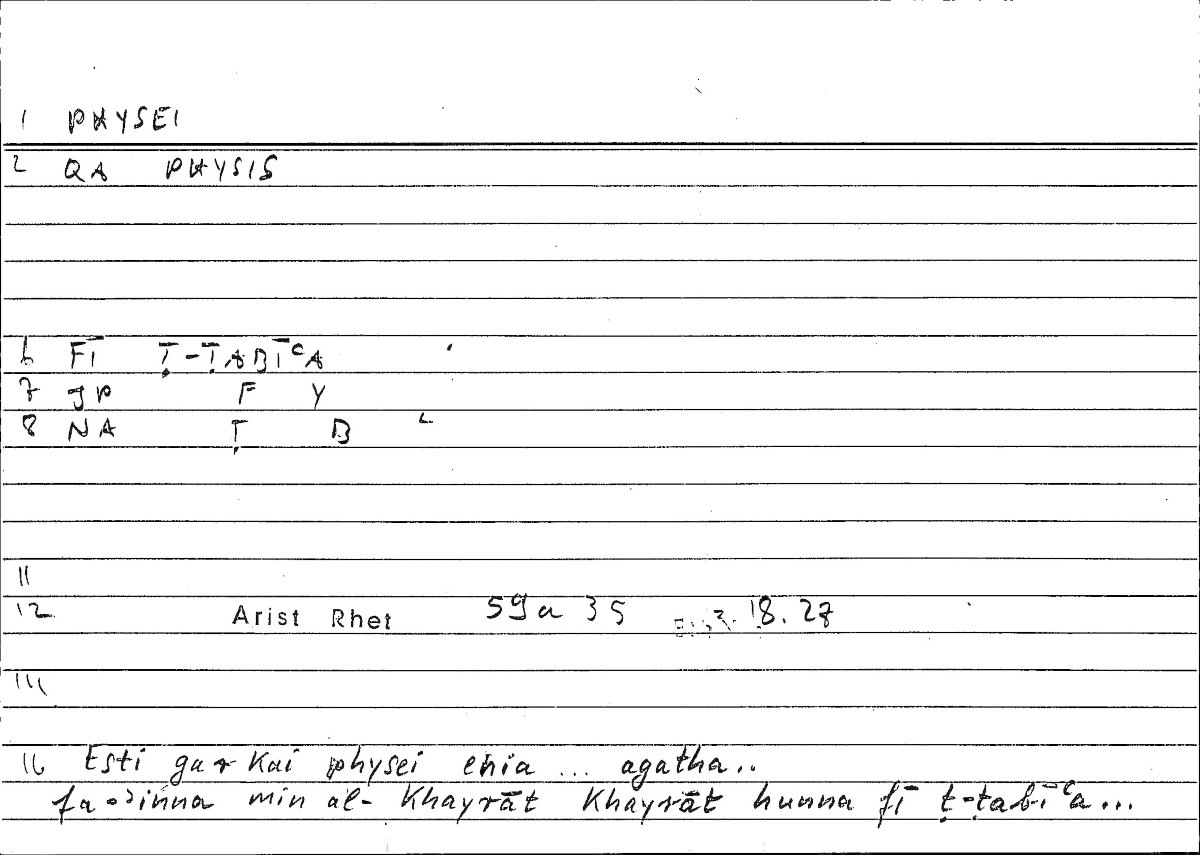 1 PHYSEI
2 QA PHYSIS
6 FĪ Ṭ-ṬABĪᶜA
7 JP F Y
8 NA Ṭ B ᶜ
11
12 Arist Rhet 59a 35 18.27
14
16 Esti gar kai physei enia ... agatha..
fa-ʾinna min al- Khayrāt Khayrāt hunna fī ṭ-ṭabīᶜa...